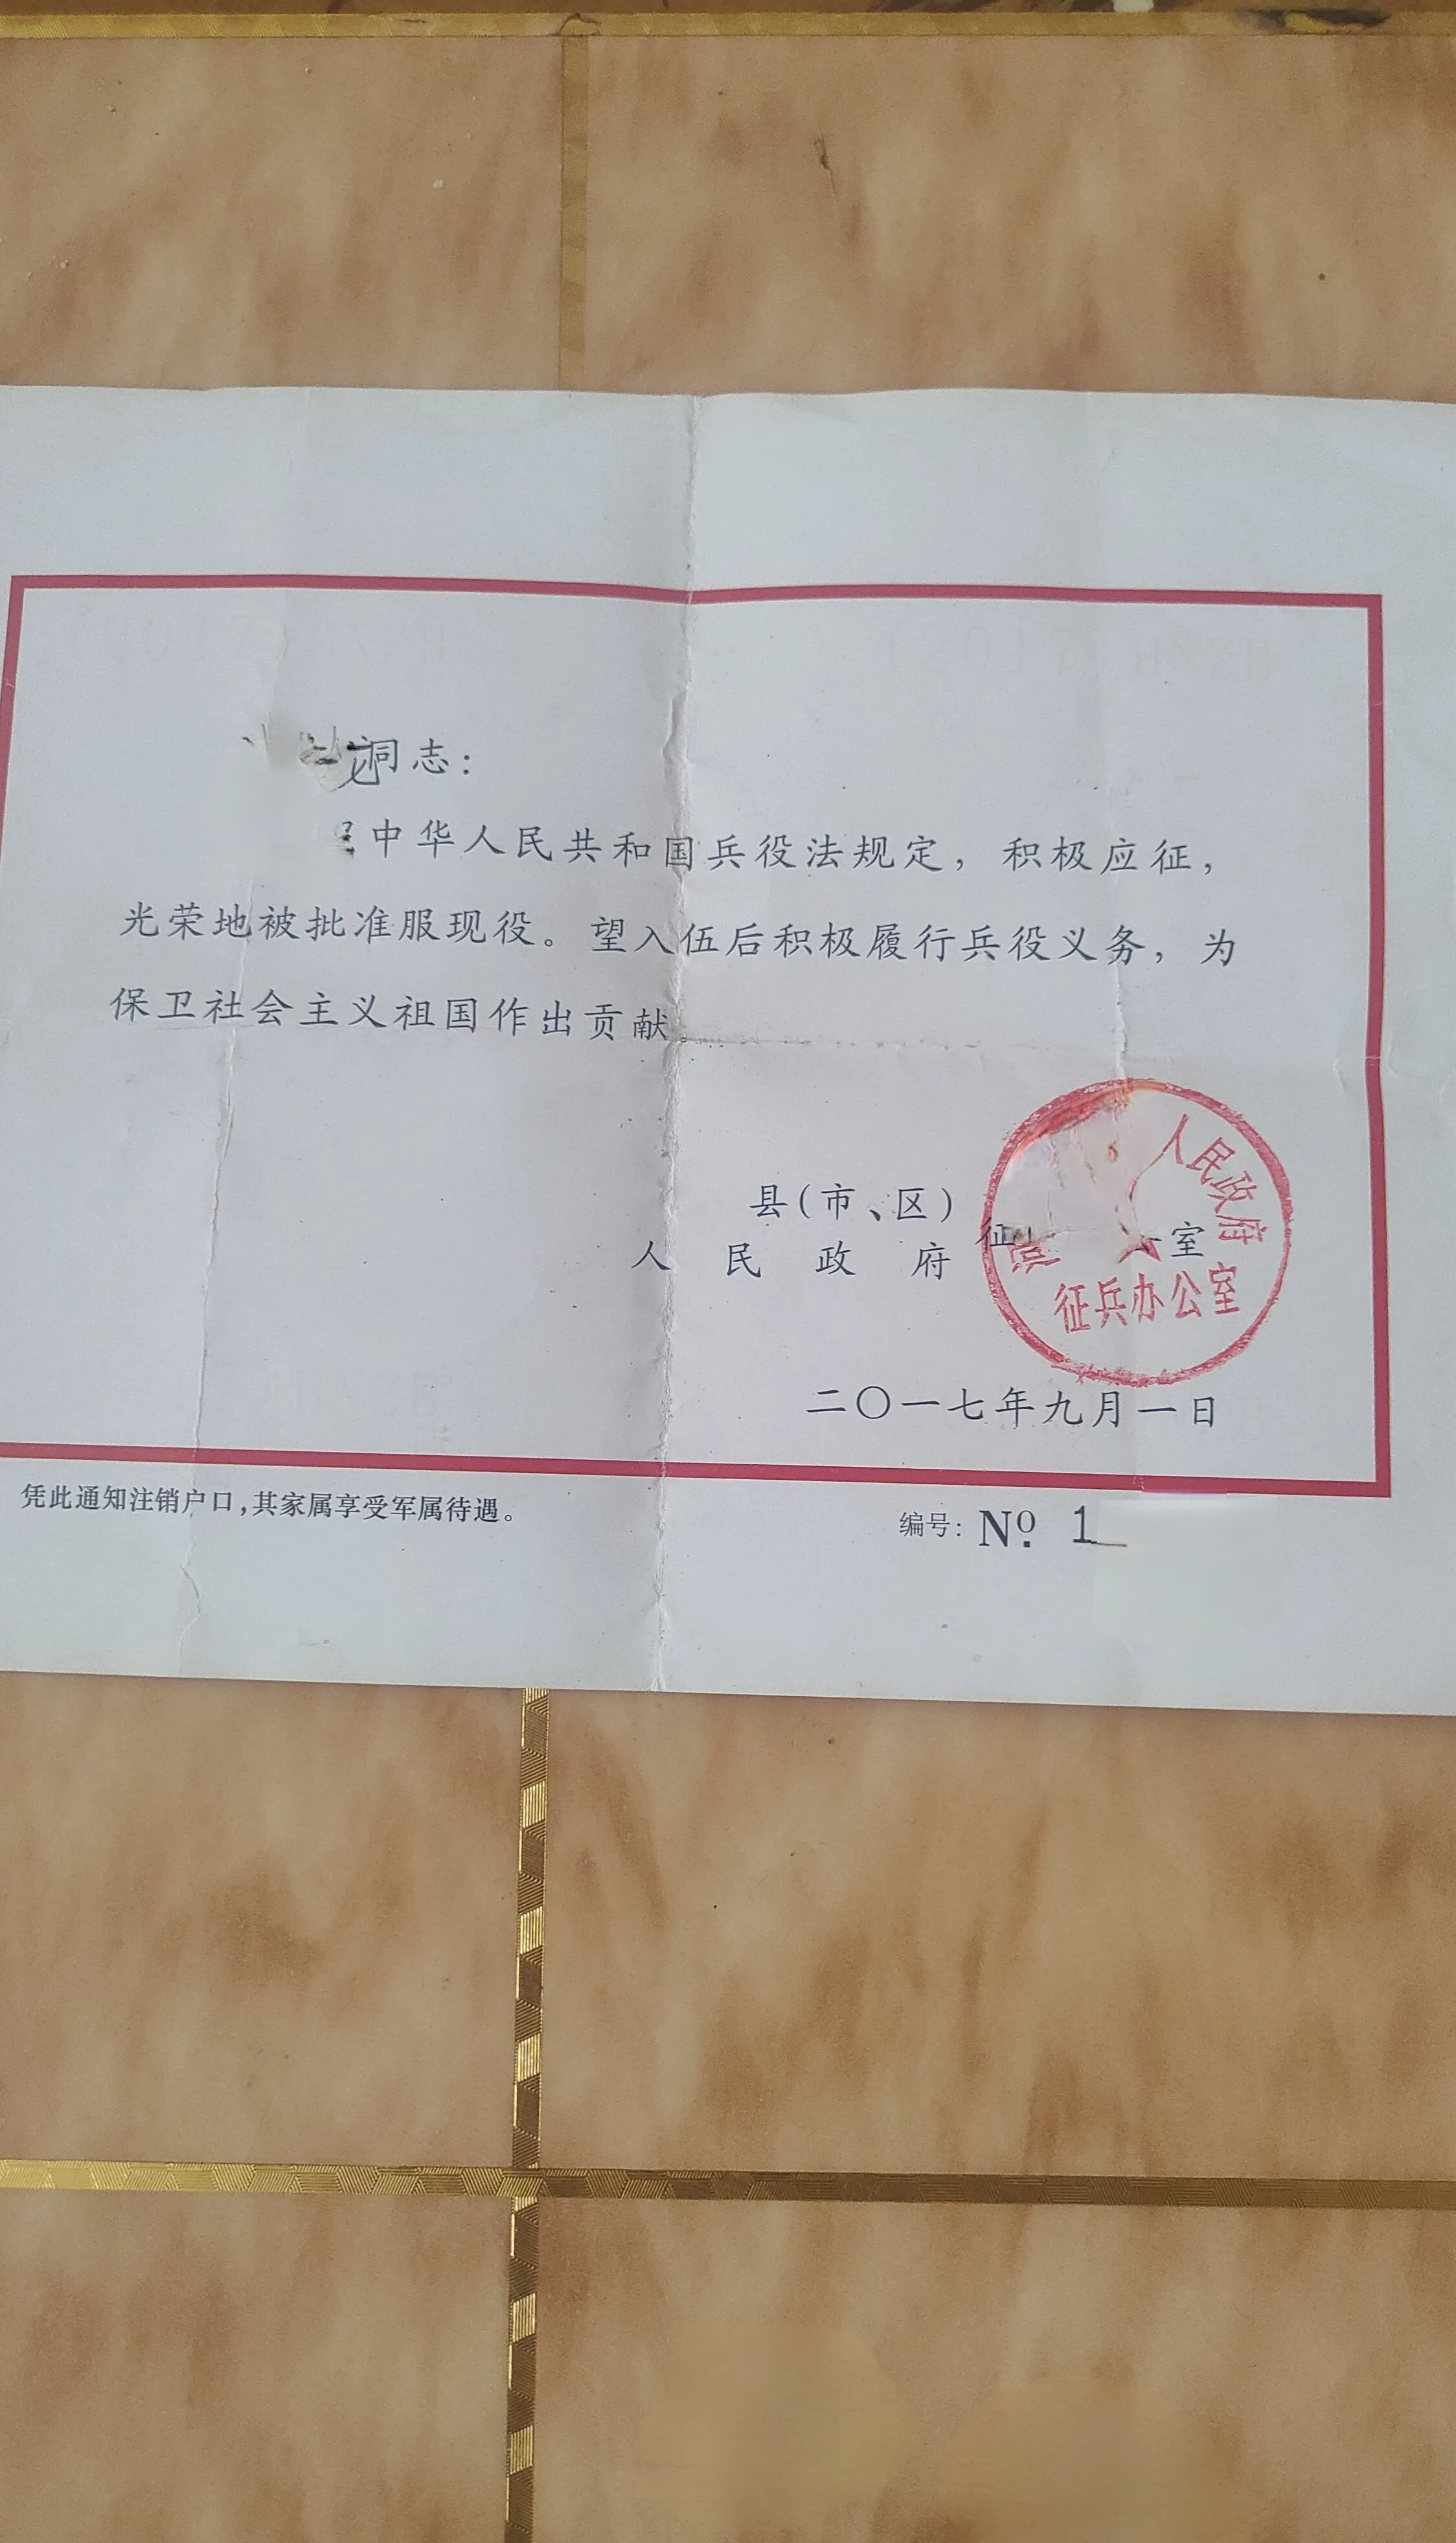 同志：
中华人民共和国兵役法规定，积极应征，
光荣地被批准服现役。望入伍后积极履行兵役义务，为
保卫社会主义祖国作出贡献。
县(市、区)
人民政府
征 室
人民政府
征兵办公室
二〇一七年九月一日
凭此通知注销户口，其家属享受军属待遇。
编号： Nº. 1